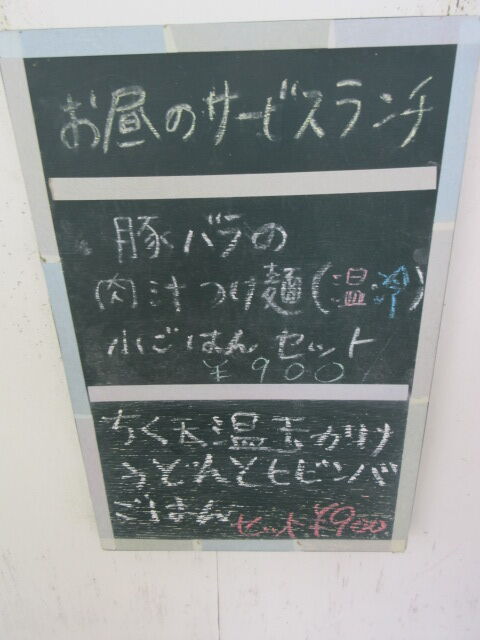 お昼のサービスランチ
豚バラの
肉汁つけ麺(温・冷)
小ごはんセット
¥900
ちく天温玉かけ
うどんとビビンバ
ごはんセット¥900